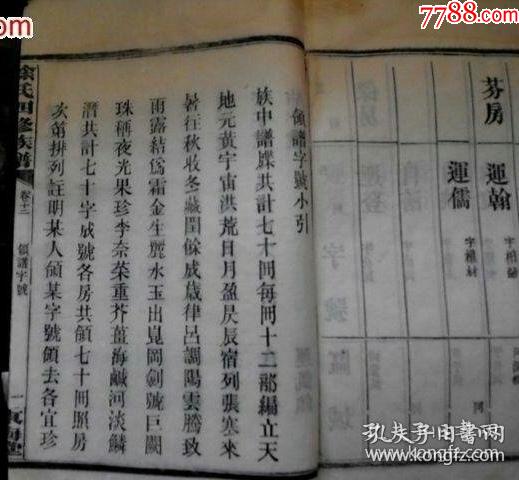 7788.com
芬房
運翰
運儒
領譜字號小引
族中譜牒共計七十冊每冊十二部編立天
地元黃宇宙洪荒日月盈昃辰宿列張寒來
暑往秋收冬藏閏餘成歲律呂調陽雲騰致
雨露結爲霜金生麗水玉出崑岡劍號巨闕
珠稱夜光果珍李柰菜重芥薑海鹹河淡鱗
潛共計七十字成號各房共領七十冊照房
次第排列註明某人領某字號領去各宜珍
氏四修族譜
卷十三
領譜字號
孔夫子旧书网
kongfz.com